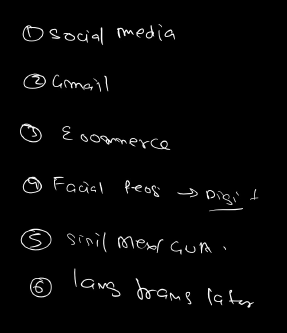 ① Social media
② Gmail
③ Ecommerce
④ Facial Recog → Digi t
⑤
⑥ lang translater